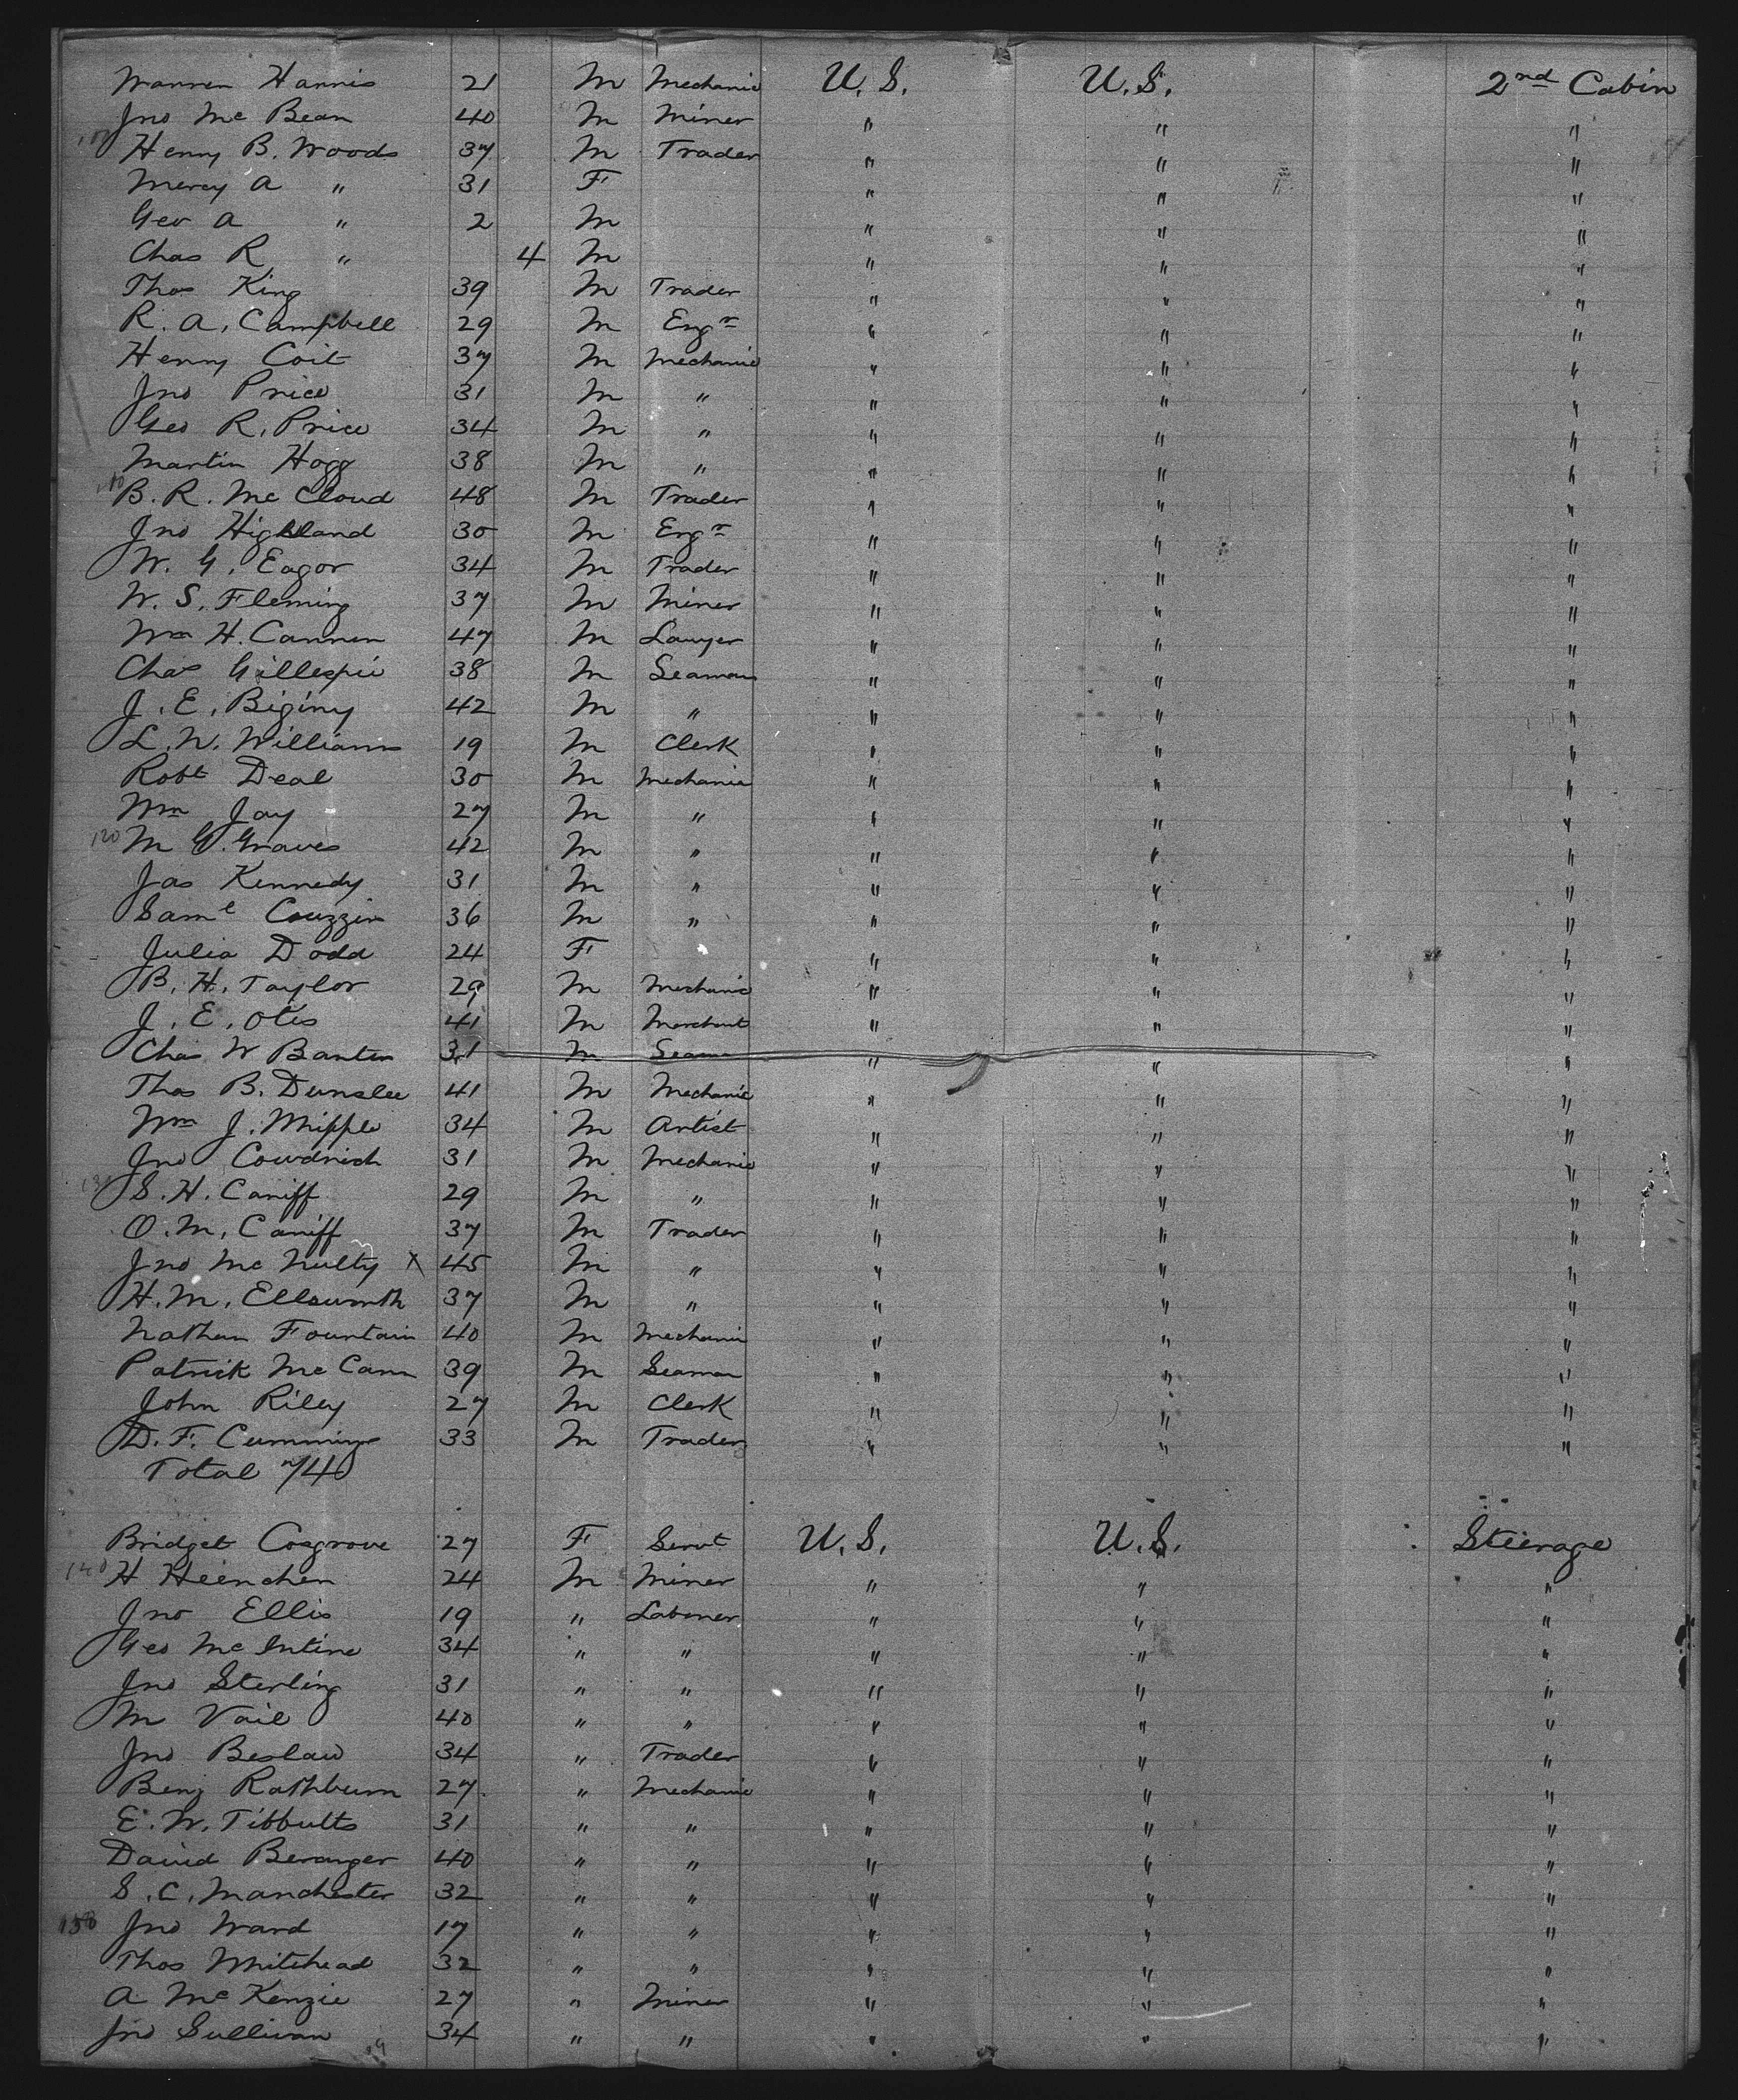 Warren Harris 21 M Mechanic U.S. U.S. 2nd Cabin
Jno Mc Bean 40 M Miner " " "
Henry B. Woods 37 M Trader " " "
Mercy A " 31 F " " "
Geo A " 2 M " " "
Chas R " 4 M " " "
Thos King 39 M Trader " " "
R. A. Campbell 29 M Engr " " "
Henry Coit 37 M Mechanic " " "
Jno Price 31 M " " " "
Geo R. Price 34 M " " " "
Martin Hogg 38 M " " " "
110 B. R. Mc Cloud 48 M Trader " " "
Jno Highland 30 M Engr " " "
W. G. Eagor 34 M Trader " " "
W. S. Fleming 37 M Miner " " "
Wm H. Cannon 47 M Lawyer " " "
Chas Gillespie 38 M Seaman " " "
J. E. Biginy 42 M " " " "
L. W. Williams 19 M Clerk " " "
Robt Deal 30 M Mechanic " " "
Wm Jay 27 M " " " "
120 M G. Graves 42 M " " " "
Jas Kennedy 31 M " " " "
Saml Couzzin 36 M " " " "
Julia Dodd 24 F " " "
B. H. Taylor 29 M Mechanic " " "
J. E. Otis 41 M Merchant " " "
Chas W Banten 31 M Seaman " " "
Thos B. Dunslee 41 M Mechanic " " "
Wm J. Mipple 34 M Artist " " "
Jno Cowdrich 31 M Mechanic " " "
S. H. Caniff 29 M " " " "
O. M. Caniff 37 M Trader " " "
Jno Mc Nulty X 45 M " " " "
H. M. Ellsworth 37 M " " " "
Nathan Fountain 40 M Mechanic " " "
Patrick Mc Cann 39 M Seaman " " "
John Riley 27 M Clerk " " "
D. F. Cummings 33 M Trader " " "
Total 74
Bridget Cosgrove 27 F Servt U.S. U.S. Steerage
140 H Heinchen 24 M Miner " " "
Jno Ellis 19 " Laborer " " "
Geo Mc Intire 34 " " " " "
Jno Sterling 31 " " " " "
M Vail 40 " " " " "
Jno Beslaw 34 " Trader " " "
Benj Rathburn 27 " Mechanic " " "
E. W. Tibbults 31 " " " " "
David Beranger 40 " " " " "
S. C. Manchester 32 " " " " "
150 Jno Ward 17 " " " " "
Thos Whitehead 32 " " " " "
A Mc Kenzie 27 " Miner " " "
Jno Sullivan 34 " " " " "